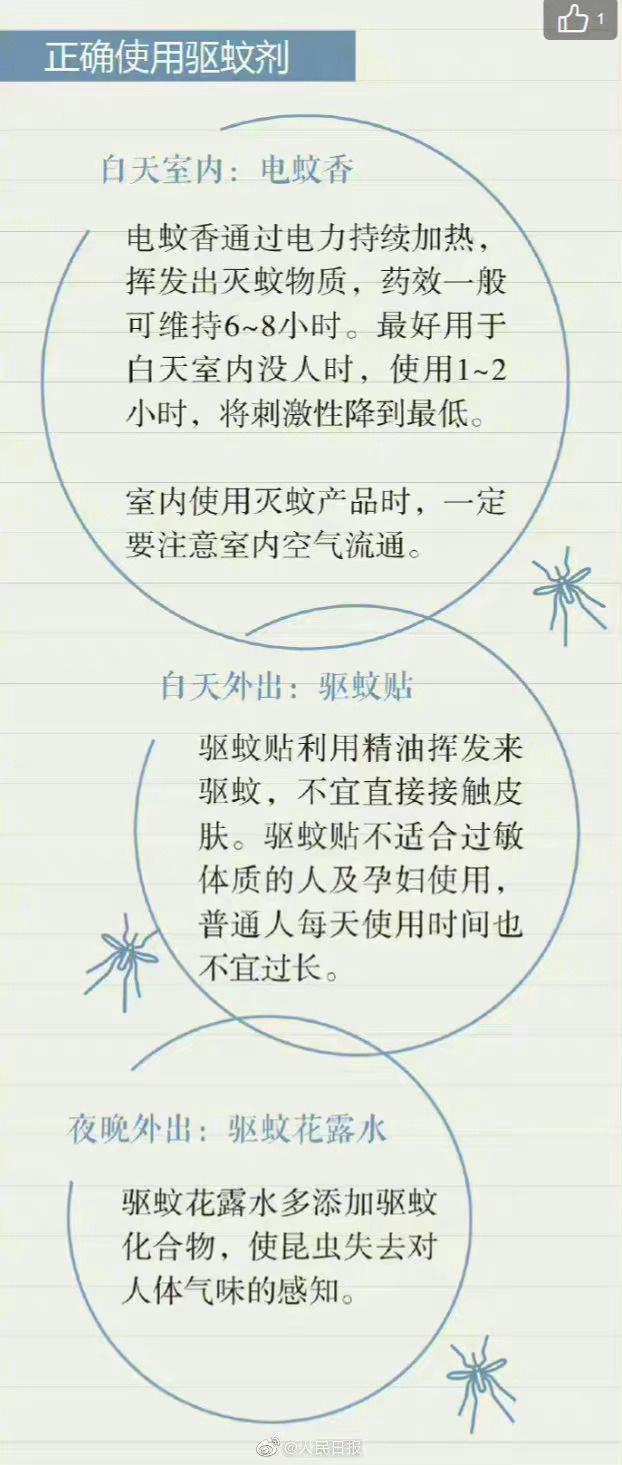 1
正确使用驱蚊剂
白天室内：电蚊香
电蚊香通过电力持续加热，
挥发出灭蚊物质，药效一般
可维持6~8小时。最好用于
白天室内没人时，使用1~2
小时，将刺激性降到最低。
室内使用灭蚊产品时，一定
要注意室内空气流通。
白天外出：驱蚊贴
驱蚊贴利用精油挥发来
驱蚊，不宜直接接触皮
肤。驱蚊贴不适合过敏
体质的人及孕妇使用，
普通人每天使用时间也
不宜过长。
夜晚外出：驱蚊花露水
驱蚊花露水多添加驱蚊
化合物，使昆虫失去对
人体气味的感知。
@人民日报